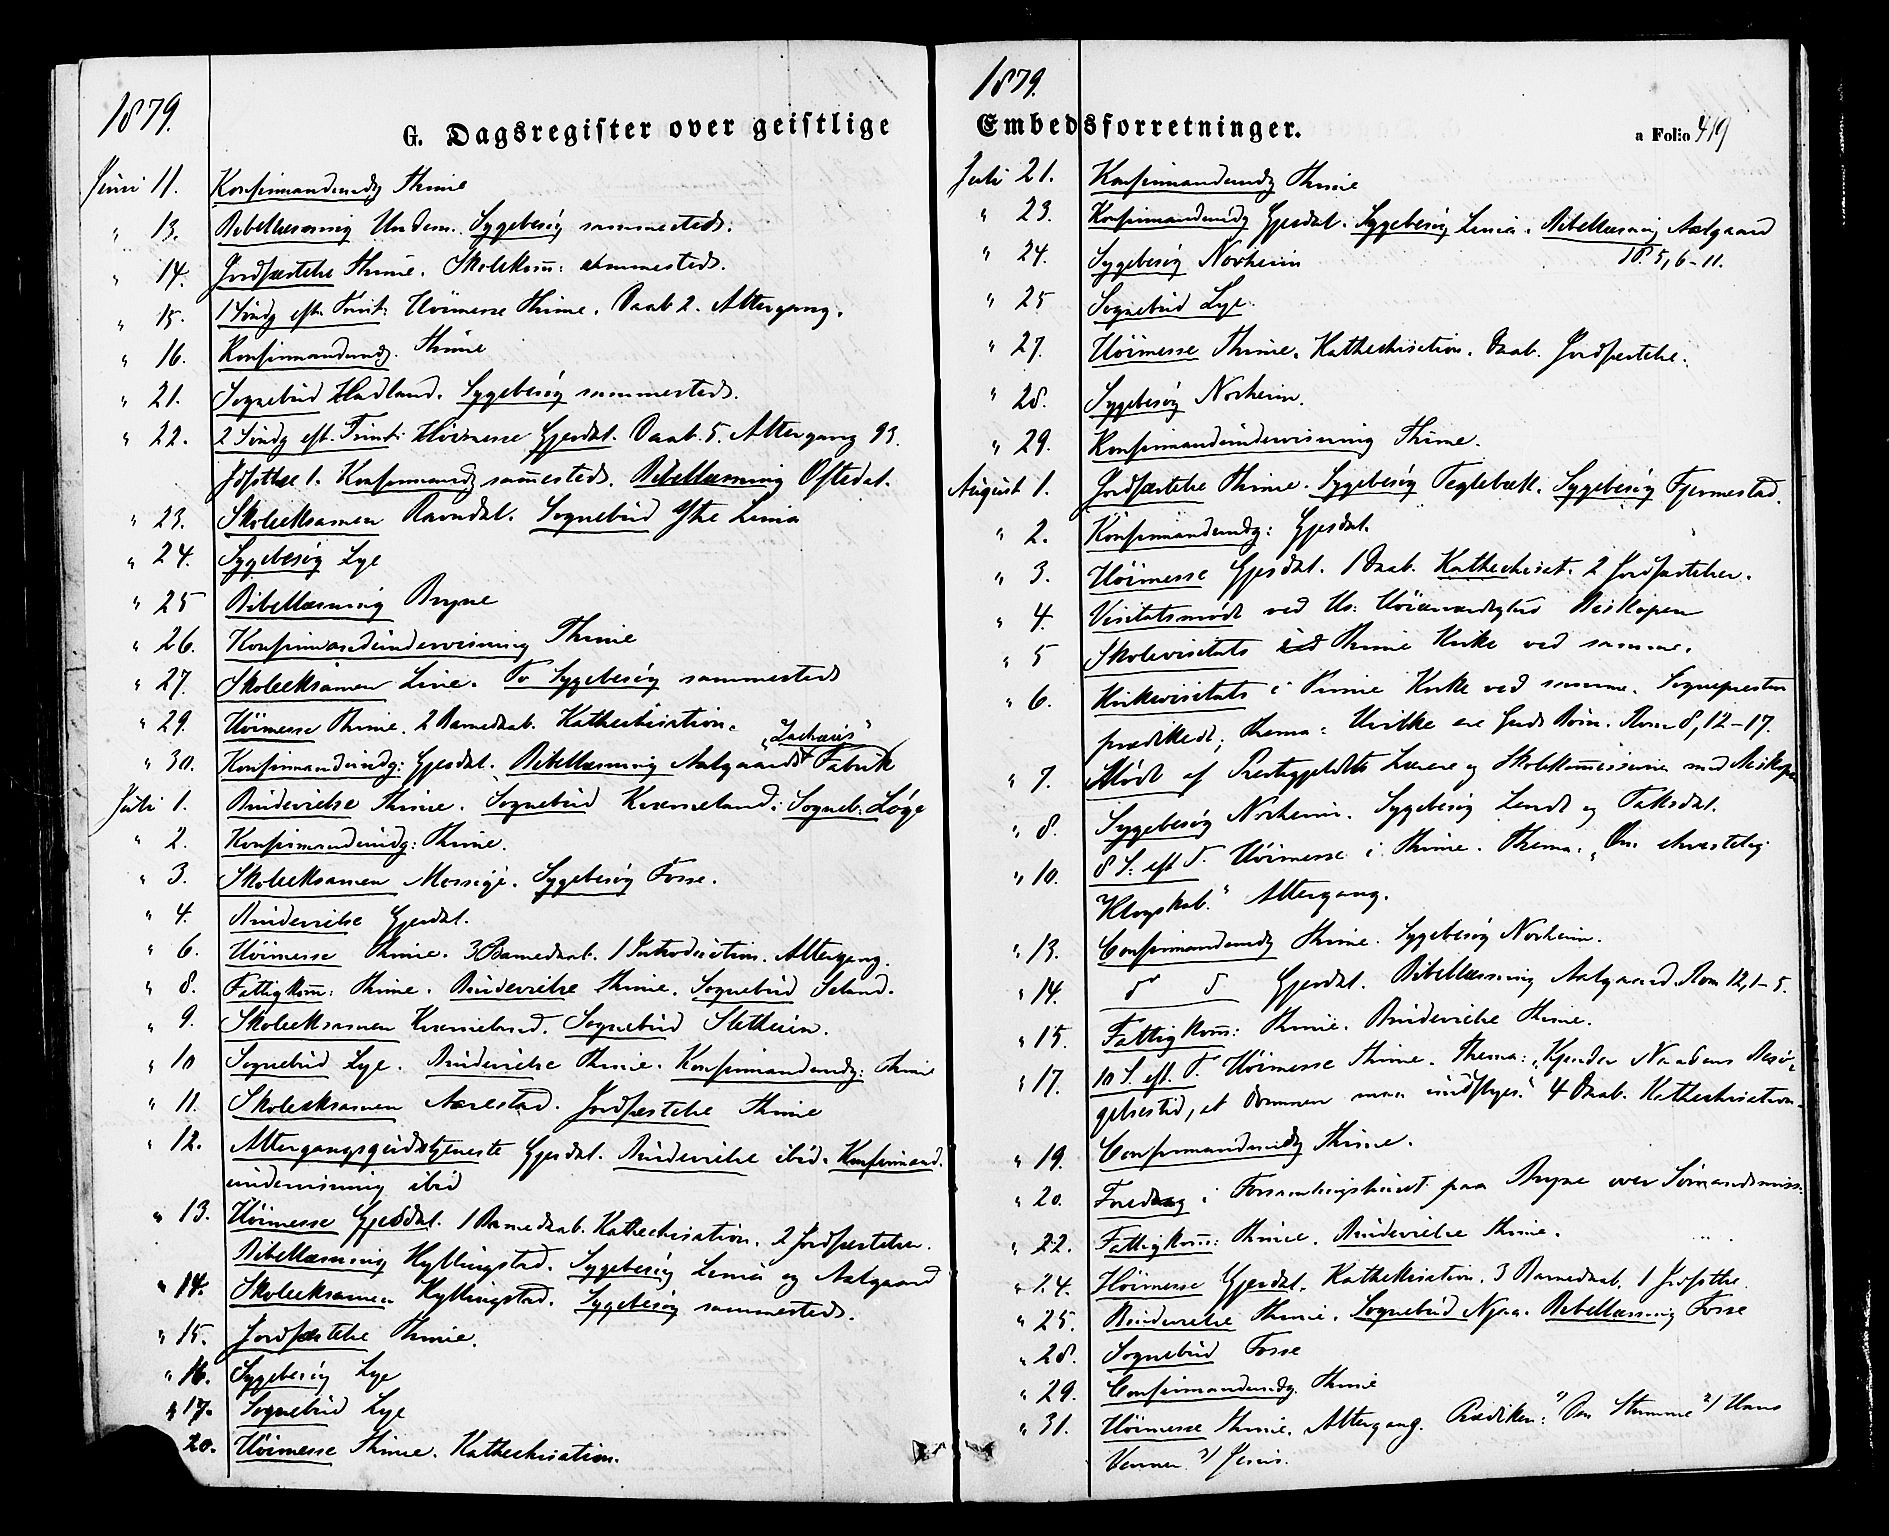 1879.
G. Dagsregister over geistlige
Juni 11. Konfirmandundg Thime
" 13. Bibellæsning Undem. Sygebesøg sammesteds.
" 14. Jordfæstelse Thime. Skolekom: sammesteds.
" 15. 1 Søndg eft. Trinit: Høimesse Thime. Daab 2. Altergang.
" 16. Konfirmandundg. Thime
" 21. Sognebud Hadland. Sygebesøg sammesteds.
" 22. 2 Søndg eft. Trinit: Høimesse Gjesdal. Daab 5. Altergang 93.
Jdfsttlse 1. Konfirmandg sammesteds. Bibellæsning Oftedal.
" 23. Skoleeksamen Ravndal. Sognebud Ystre Lima
" 24. Sygebesøg Lye
" 25 Bibellæsning Bryne
" 26. Konfirmandundervisning Thime
" 27. Skoleeksamen Line. To Sygebesøg sammesteds
" 29. Høimesse Thime. 2 Barnedaab. Kathechisation.
" 30. Konfirmandundg: Gjesdal. Bibellæsning Aalgaards Fabrik "Zachæus"
Juli 1. Brudevielse Thime. Sognebud Kverneland. Sogneb: Løge
" 2. Konfirmandundg: Thime.
" 3. Skoleeksamen Mossige. Sygebesøg Fosse.
" 4. Brudevielse Gjesdal.
" 6. Høimesse Thime. 3 Barnedaab. 1 Introduction. Altergang.
" 8. Fattigkom: Thime. Brudevielse Thime. Sognebud Seland.
" 9. Skoleeksamen Kverneland. Sognebud Sletheien.
" 10 Sognebud Lye. Brudevielse Thime. Konfirmandundg: Thime
" 11. Skoleeksamen Aarestad. Jordfæstelse Thime
" 12. Altergangsgudstjeneste Gjesdal. Brudevielse ibid. Konfirmand.
undervisning ibid
" 13. Høimesse Gjesdal. 1 Barnedaab. Kathechisation. 2 Jordfæstelser.
Bibellæsning Hyllingstad. Sygebesøg Lima og Aalgaard
" 14. Skoleeksamen Kyllingstad. Sygebesøg sammesteds.
" 15. Jordfæstelse Thime.
" 16. Sygebesøg Lye
" 17. Sognebud Lye
20. Høimesse Thime. Kathechisation.
1879.
Embedsforretninger.
a Folio 419
Juli 21. Konfirmandundg Thime
" 23. Konfirmandundg Gjesdal. Sygebesøg Limia. Bibellæsning Aalgaard
5, 6-11.
" 24. Sygebesøg Norheim
" 25 Sognebud Lye.
" 27. Høimesse Thime. Kathechisation. Daab. Jordfæstelse.
" 28. Sygebesøg Norheim.
" 29. Konfirmandundervisning Thime.
August 1. Jordfæstelse Thime. Sygebesøg Teglebæk. Sygebesøg Fjermestad.
" 2. Konfirmandundg: Gjesdal.
" 3. Høimesse Gjesdal. 1 Daab. Kathechisat. 2 Jordfæstelser.
" 4. Visitatsmødt ved Hs: Høiærværdighed Biskopen
" 5 Skolevisitats i Thime Kirke ved samme.
" 6. Kirkevisitats i Thime Kirke ved samme. Sognepresten
prædikede; Thema: Hvilke ere Guds Børn. Rom 8, 12-17.
" 7. Mødt af Prestegjeldets Lærere og Skolekommissionen med Biskopen
" 8. Sygebesøg Norheim. Sygebesøg Lende og Taksdal.
" 10. 8 S: eft T. Høimesse i Thime. Thema. "Om christelig
Klogskab." Altergang.
" 13. Confirmandundg Thime. Sygebesøg Norheim.
" 14. do do Gjesdal. Bibellæsning Aalgaard. Rom 12, 1-5.
" 15. Fattigkom: Thime. Brudevielse Thime.
" 17. 10 S. eft. T. Høimesse Thime. Thema: "Kjender Naadens Besø-
gelsestid, at Dommen maa undflyes." 4 Daab. Kathechisation.
" 19. Confirmandundg Thime.
" 20. Foredrag i Forsamlingshuset paa Bryne over Sømandsmiss:
" 22. Fattigkom: Thime. Brudevielse Thime.
" 24. Høimesse Gjesdal. Kathekisation. 3 Barnedaab. 1 Jrdfsttlse.
" 25. Brudevielse Thime. Sognebud Njaa. Bibellæsning Fosse
" 28. Sognebud Fosse
" 29. Confirmandundg. Thime
" 31. Høimesse Thime. Altergang. Prædiken: 1) Den Stumme 2) Hans
Venner 3) Jesus.